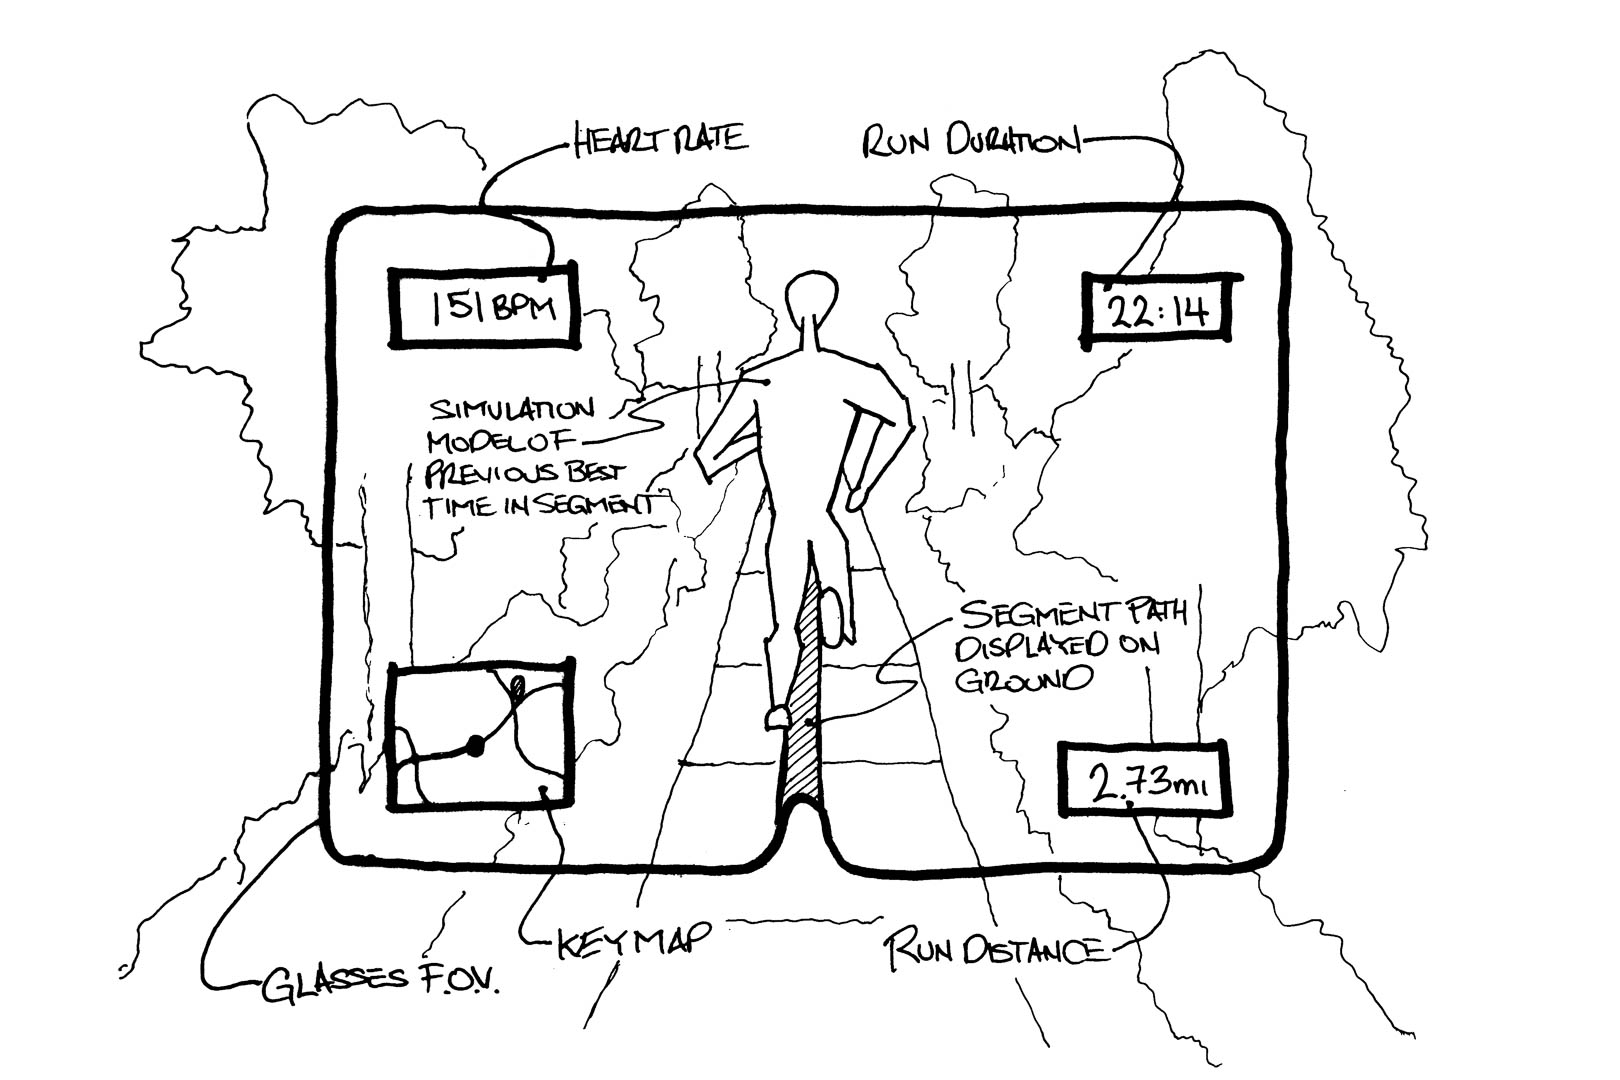 HEART RATE
RUN DURATION
151 BPM
22:14
SIMULATION
MODEL OF
PREVIOUS BEST
TIME IN SEGMENT
SEGMENT PATH
DISPLAYED ON
GROUND
2.73mi
KEY MAP
RUN DISTANCE
GLASSES F.O.V.